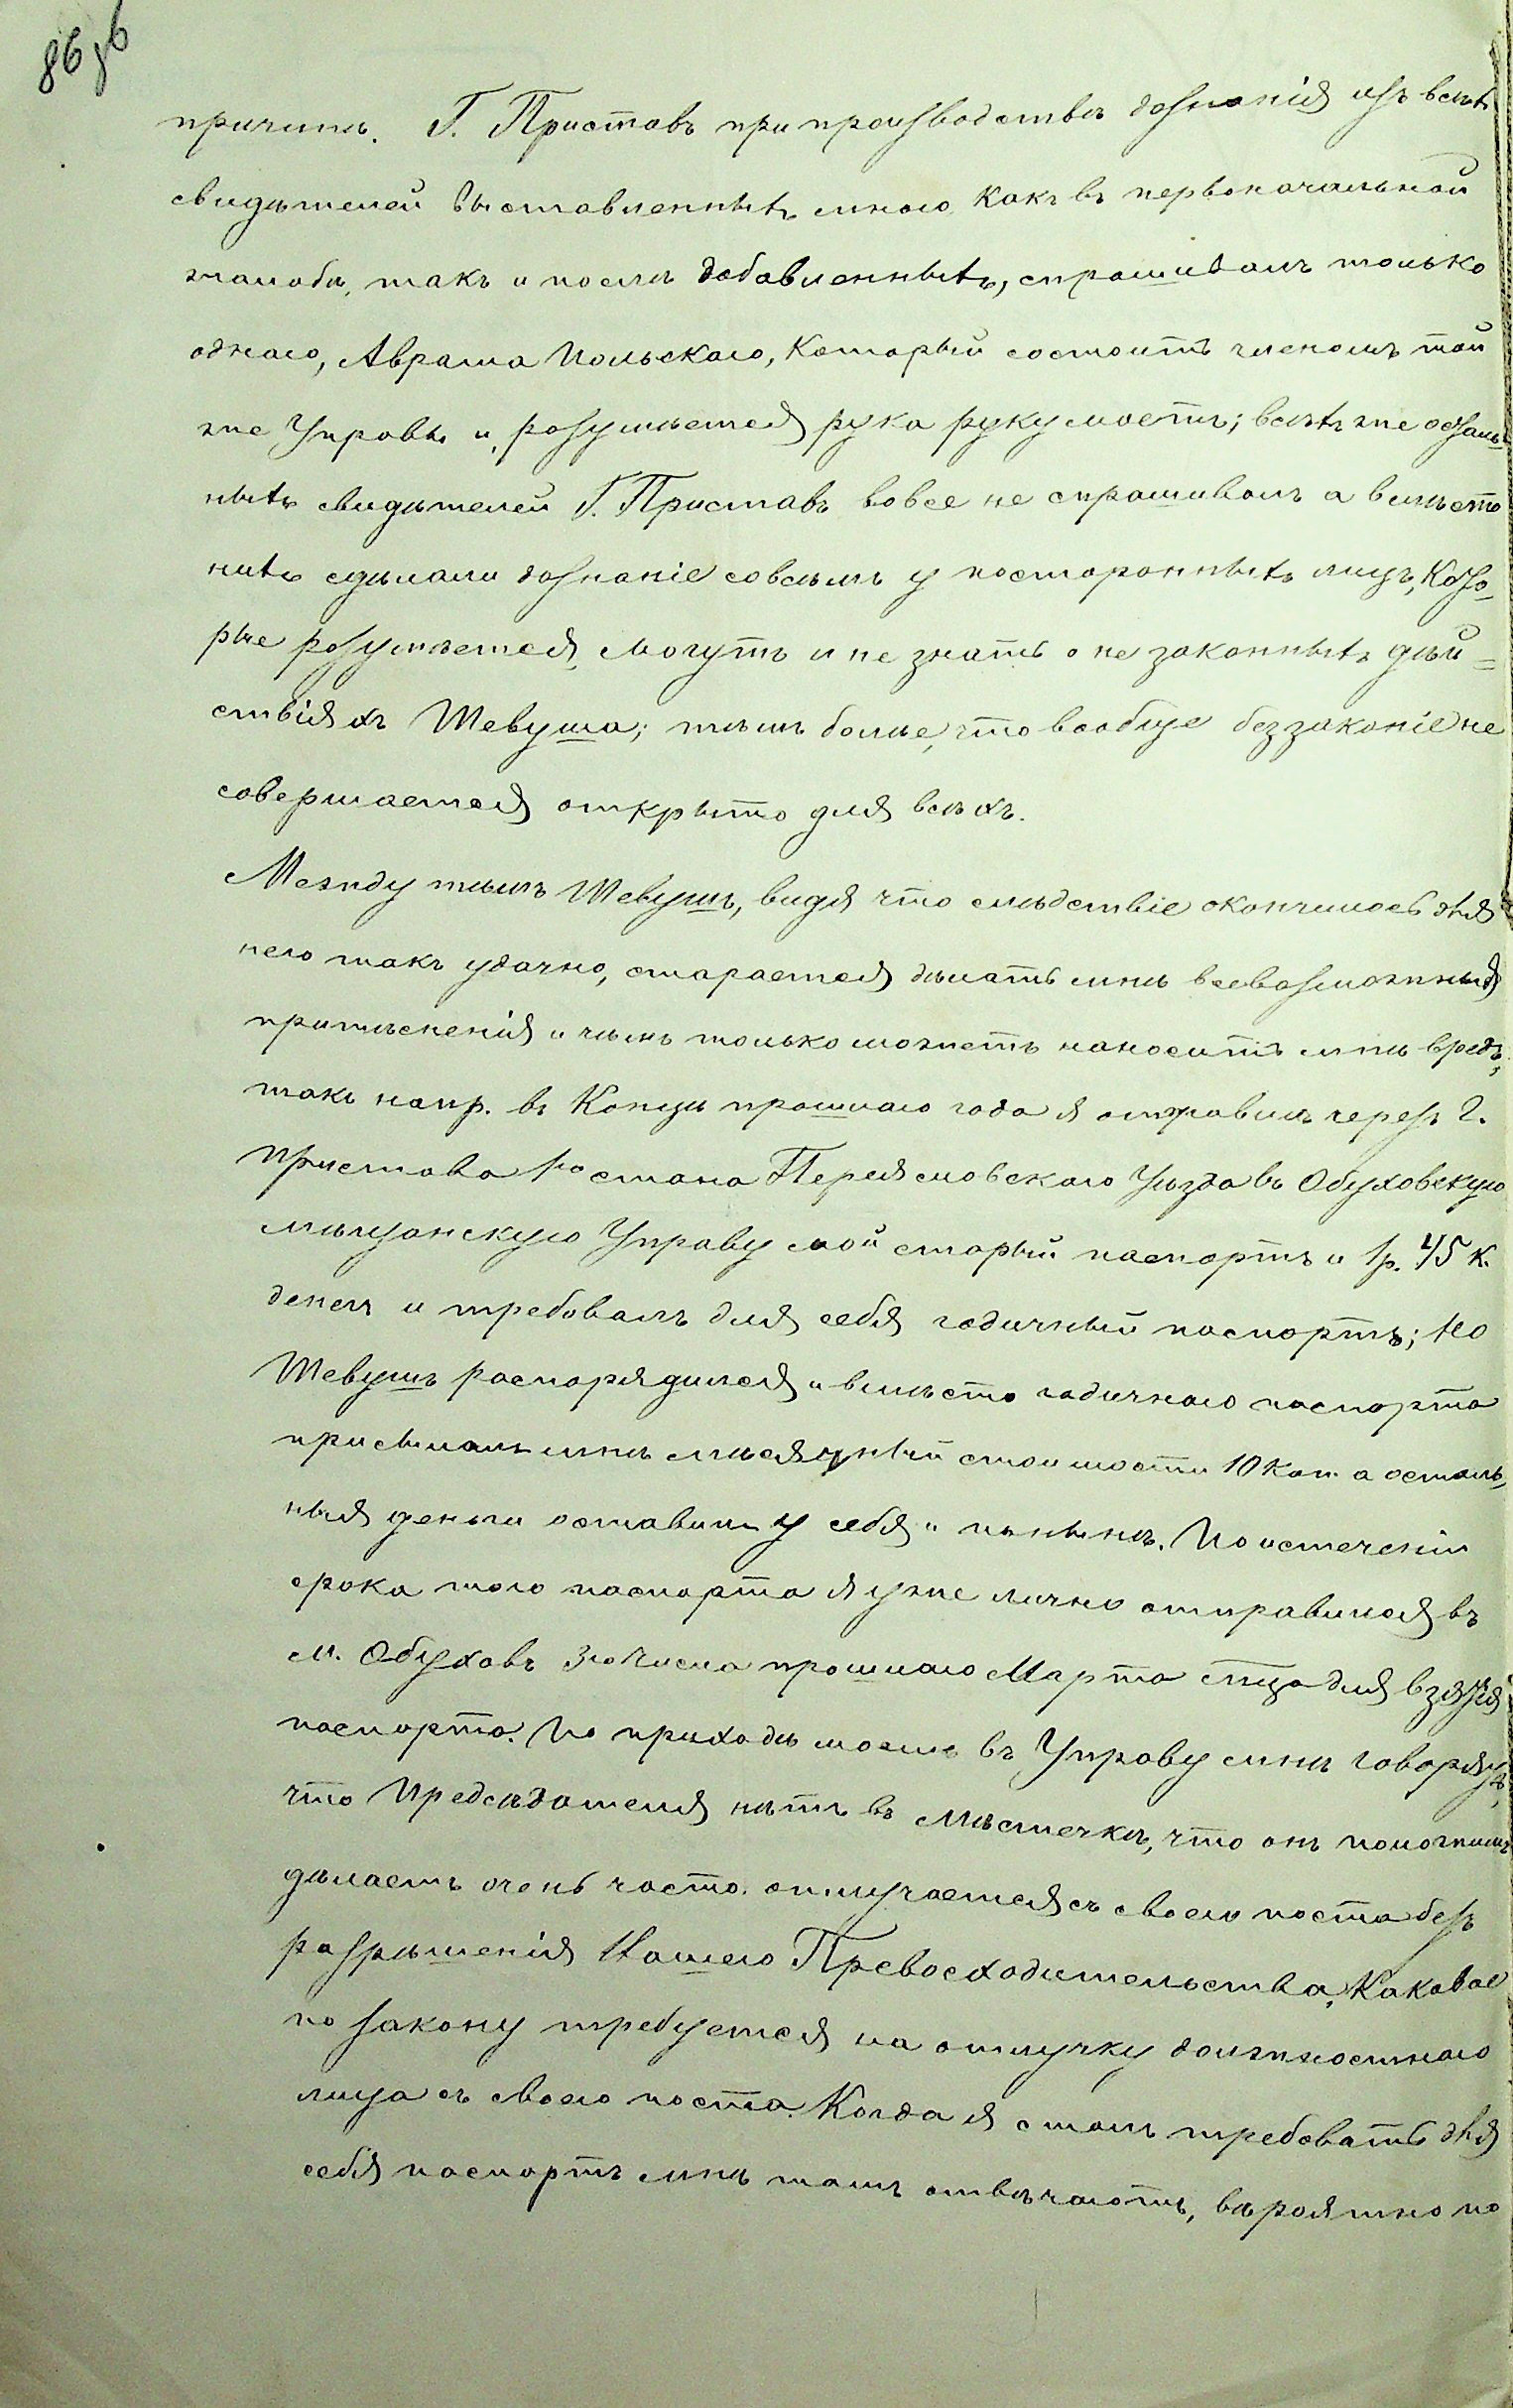 86 об
причинѣ. Г. Приставъ при производствѣ дознанія изъ всѣхъ
свидѣтелей выставленныхъ мною какъ въ первоначальной
жалобѣ, такъ и послѣ добавленныхъ, спрашивалъ только
однаго, Аврама Польскаго, который состоитъ членомъ той
же Управы и, розумѣется рука руку моетъ; всѣхъ же осталь-
ныхъ свидѣтелей Г. Приставъ вовсе не спрашивалъ а вмѣсто
нихъ сдѣлали дознаніе совсѣмъ у посторонныхъ лицъ, кото-
рые розумѣется, могутъ и не знать о не законныхъ дѣй=
ствіяхъ Шевуша; тѣмъ болѣе, что вообще беззаконіе не
совершается открыто для всѣхъ.
Между тѣмъ Шевушъ, видя что слѣдствіе окончилось для
него такъ удачно, старается дѣлать мнѣ всевозможныя
притѣсненія и чѣмъ только можетъ наносить мнѣ вредъ,
такъ напр. въ концѣ прошлаго года я отправилъ черезъ Г.
Пристава 1го стана Переясловскаго Уѣзда въ Обуховскую
мѣщанскую Управу мой старый паспортъ и 1р. 45 к.
денегъ и требовалъ для себя годичный паспортъ; но
Шевушъ распорядился и вмѣсто годичнаго паспорта
присылалъ мнѣ мѣсячный стоимости 10 коп. а осталь-
ныя деньги оставилъ у себя и понынѣ. По истеченіи
срока того паспорта я уже лично отправился въ
м. Обуховъ 3го числа прошлаго Марта м͠ца для взятія
паспорта. По приходѣ моемъ въ Управу мнѣ говорятъ,
что Предсѣдателя нѣтъ въ мѣстечкѣ, что онъ
дѣлаетъ очень часто. отлучается съ своего поста безъ
разрѣшенія Вашего Превосходительства, каковое
по закону требуется на отлучку должностнаго
лица съ своего поста. Когда я сталъ требовать для
себя паспортъ мнѣ тамъ отвѣчаютъ, вѣроятно по